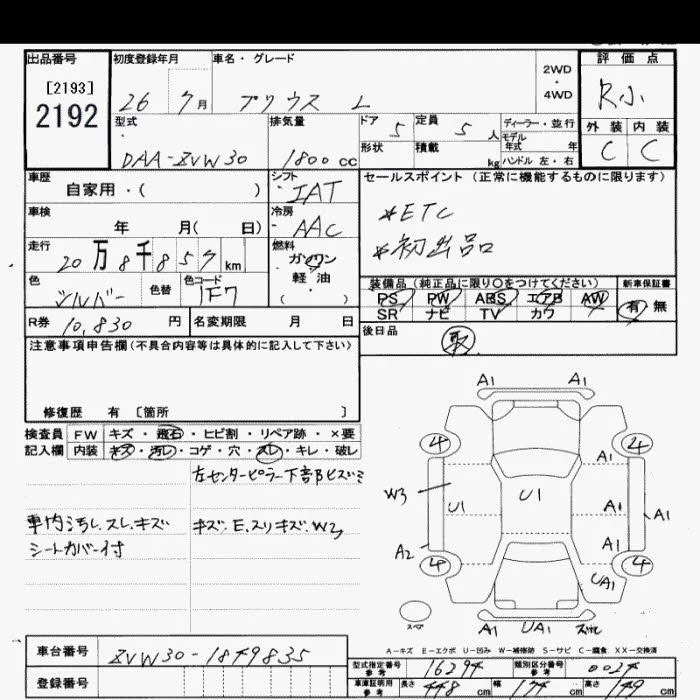 出品番号 初度登録年月 車名・グレード 2WD・4WD 評価点
[2193]
2192
26 7月 プリウス L R小
型式 排気量 ドア 5 定員 5人 ディーラー・並行 外装 内装
DAA-ZVW30 1800cc 形状 積載 kg モデル年式 年 C C
ハンドル 左・右
車歴 シフト セールスポイント (正常に機能するものに限ります)
自家用・( ) IAT
車検 冷房 *ETC
年 月( 日) AAC *初出品
走行 燃料
20万8千857km ガソリン
軽油
・( )
色 色替 色コード 装備品 (純正品に限り○をつけてください) 新車保証書
シルバー 1F7 PS PW ABS エアB AW 有 無
SR ナビ TV カワ
R券 10,830円 名変期限 月 日 後日品
取
注意事項申告欄(不具合内容等は具体的に記入して下さい)
修復歴 有 [箇所 ]
検査員 FW キズ・飛石・ヒビ割・リペア跡・×要
記入欄 内装 キズ・汚レ・コゲ・穴・スレ・キレ・破レ
左センターピラー下部ヒズミ
車内汚レ.スレ.キズ キズ.E.スリキズ.W3
シートカバー付
A1 A1
4 4
A1
W3 U1 U1 A1 A1
A2 A1
4 4
UA1
スペア A1 UA1
A-キズ E-エクボ U-凹み W-補修跡 S-サビ C-腐食 XX-交換済
車台番号 ZVW30-1849835
登録番号
型式指定番号 参考 16394 類別区分番号 参考 0024
車庫証明用 参考 長さ 448cm 幅 174cm 高さ 149cm